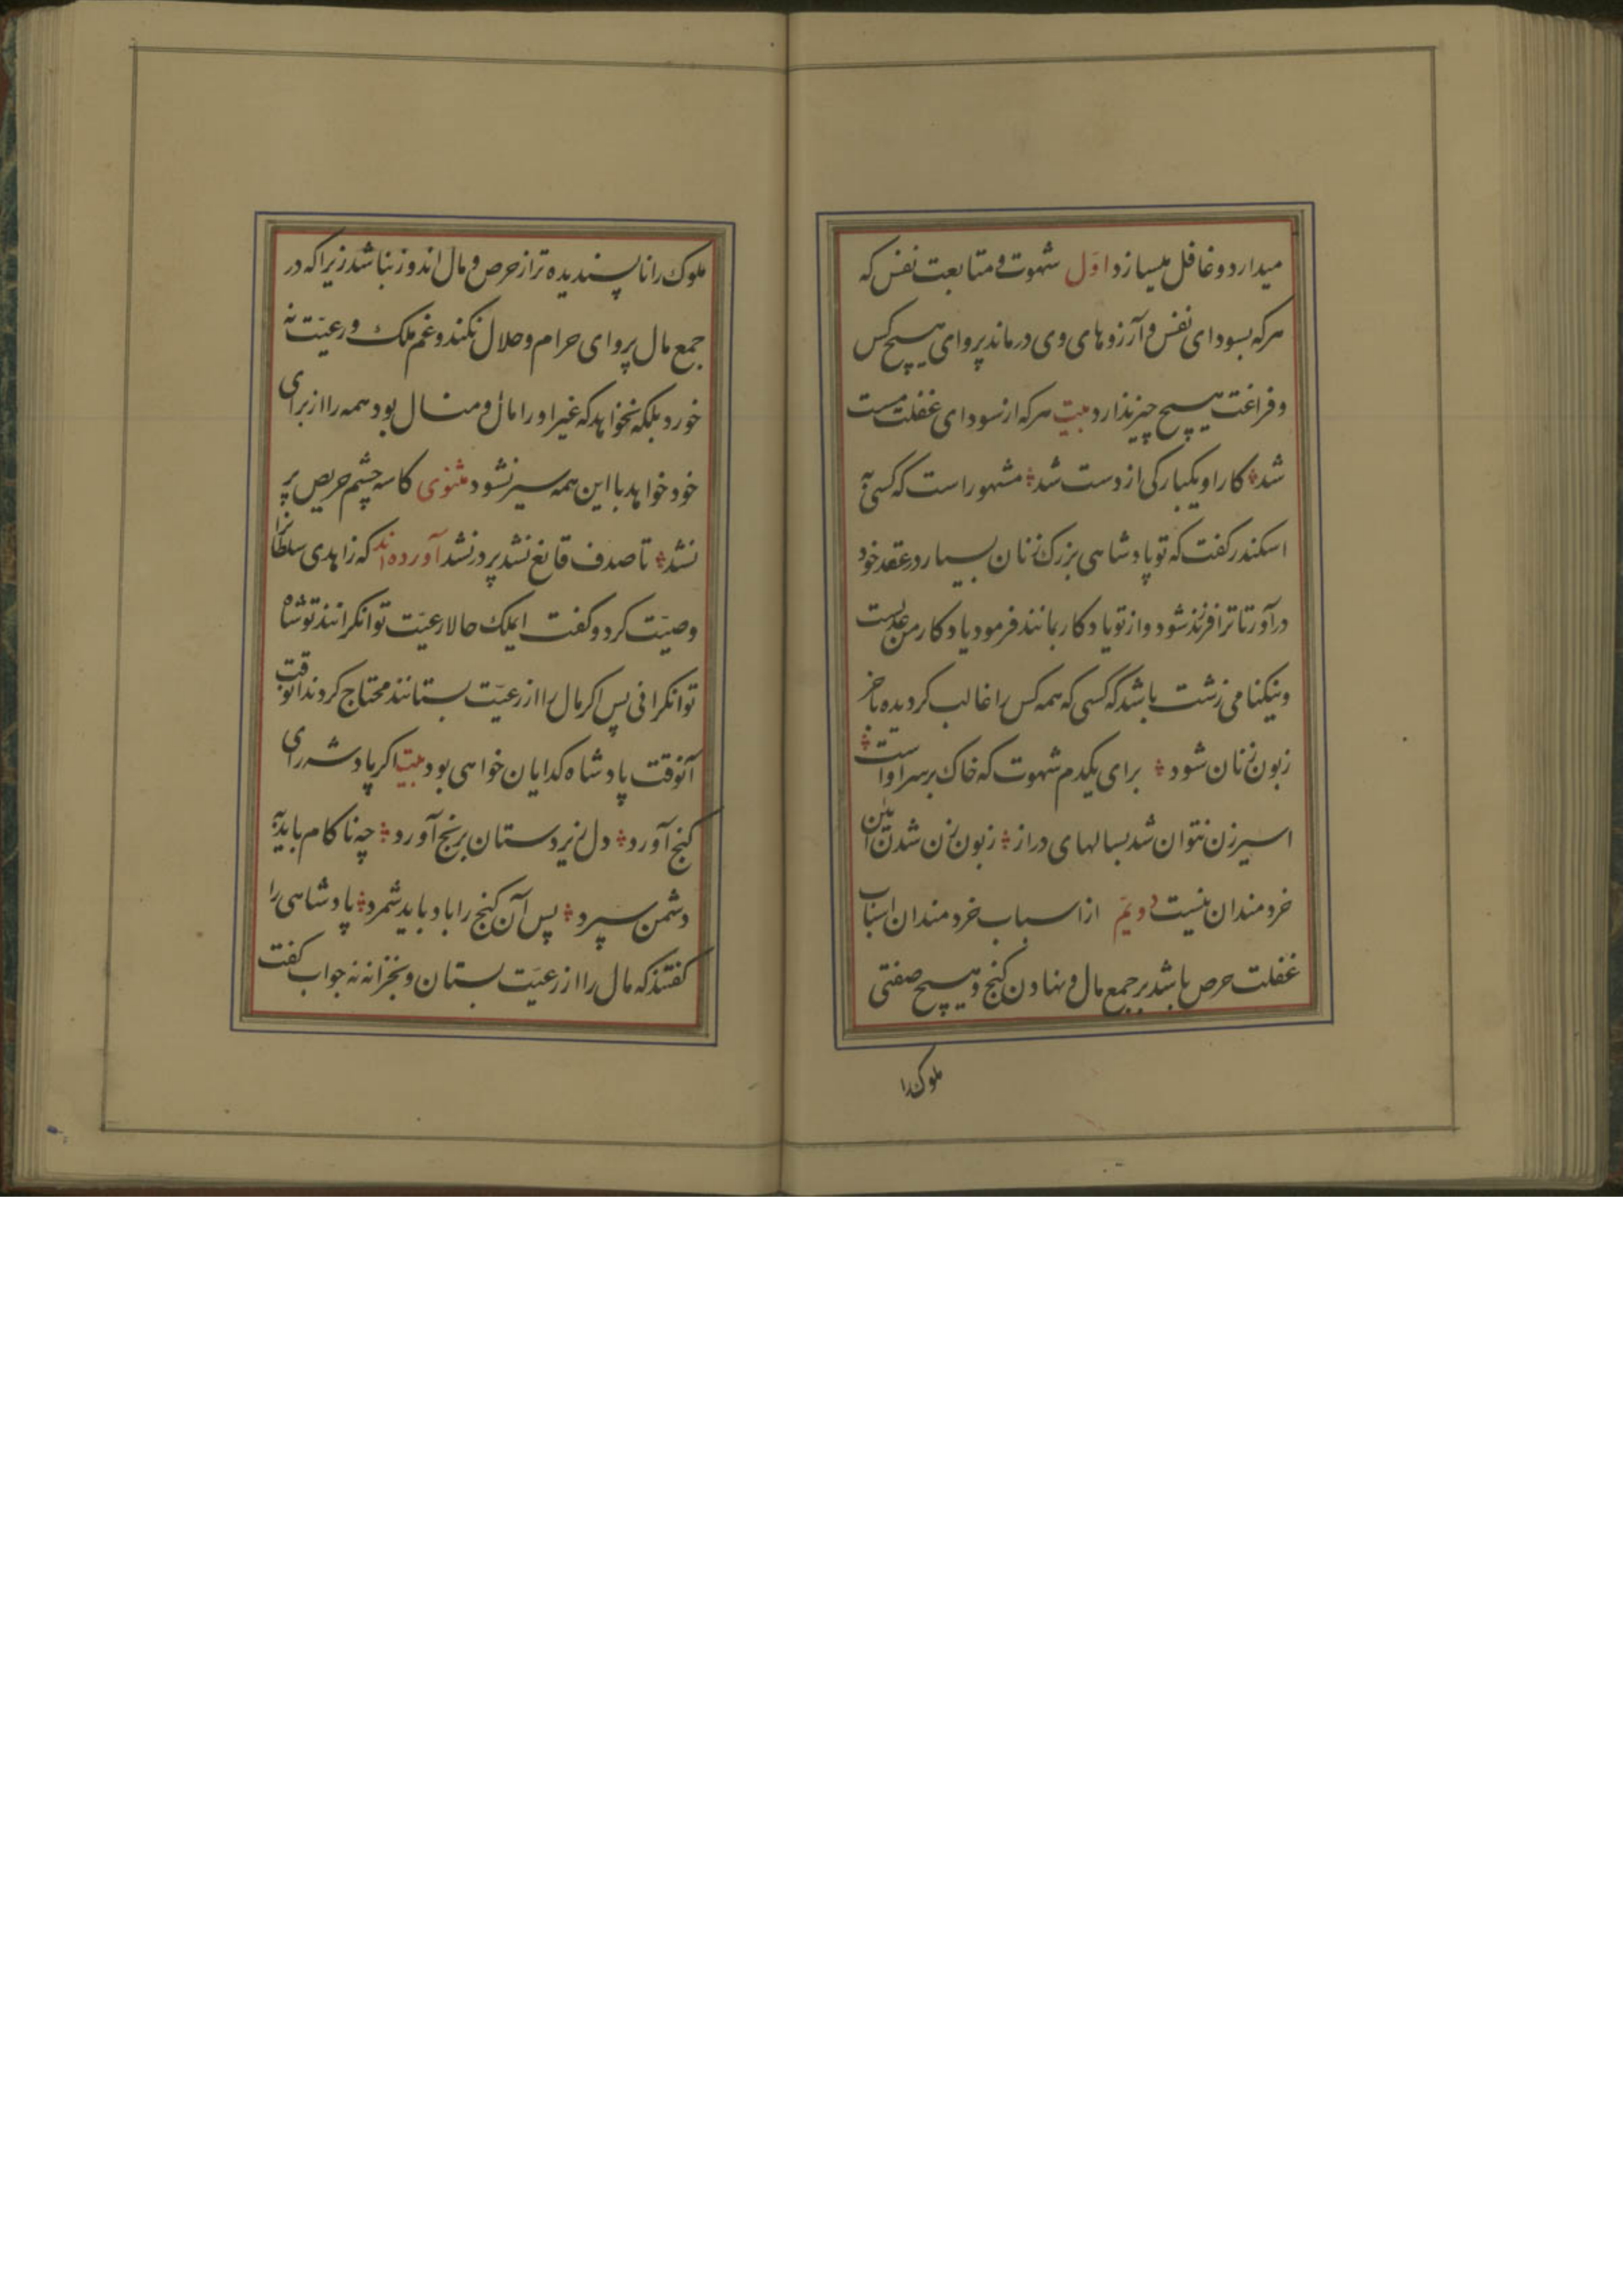 میدارد و غافل میسازد اوّل شهوت و متابعت نفس که
هرکه بسودای نفس و آرزوهای وی درماند پروای هیچ کس
و فراغت هیچ چیز ندارد بیت هرکه از سودای غفلت مست
شد کار او یکبارکی از دست شد مشهور است که کسی به
اسکندر کفت که تو پادشاهی بزرک زنان بسیار در عقد خود
درآور تا ترا فرزند شود و از تو یادکار بمانند فرمود یادکار من عدلست
و نیکنامی زشت باشد که کسی که همه کس را غالب کردیده باخر
زبون زنان شود برای یکدم شهوت که خاک بر سر اوست
اسیر زن نتوان شد بسالهای دراز زبون زن شدن آئین
خردمندان نیست دویّم از اسباب خردمندان اسباب
غفلت حرص باشد بر جمع مال و نهادن کنج و هیچ صفتی
ملوک را
ملوک را ناپسندیده تر از حرص و مال اندوز نباشد زیرا که در
جمع مال پروای حرام و حلال نکند و غم ملک و رعیّت نه
خورد بلکه نخواهد که غیر او را مال و منال بود همه را از برای
خود خواهد با این همه سیر نشود مثنوی کاسه چشم حریص پر
نشد تا صدف قانع نشد پر در نشد آورده اند که زاهدی سلطانرا
وصیّت کرد و کفت ایملک حالا رعیّت توانکرانند تو شاه
توانکرانی پس اکر مال را از رعیّت بستانند محتاج کردند آنوقت
آنوقت پادشاه کدایان خواهی بود بیت اکر پادشه رای
کنج آورد دل زیردستان برنج آورد چه ناکام باید به
دشمن سپرد پس آن کنج را باد باید شمرد پادشاهی را
کفتند که مال را از رعیّت بستان و بخزانه نه جواب کفت